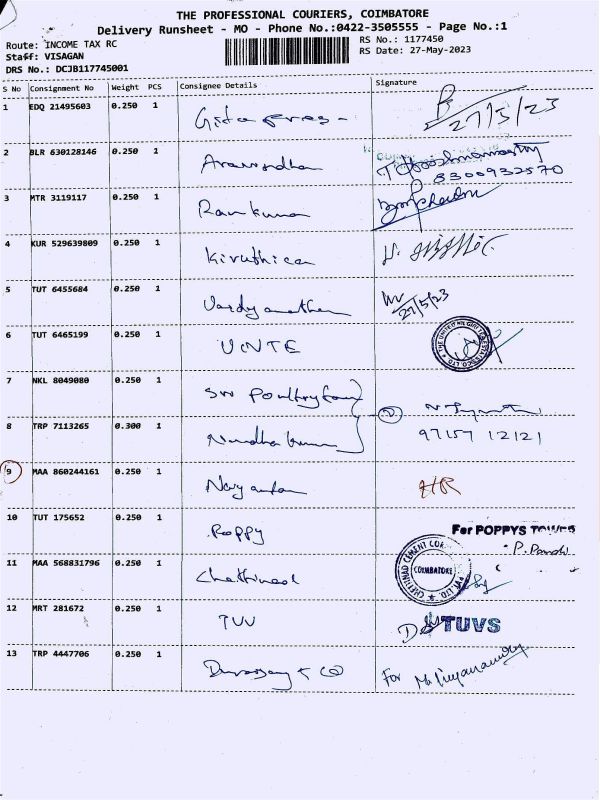 THE PROFESSIONAL COURIERS, COIMBATORE
Delivery Runsheet - MO - Phone No.:0422-3505555 - Page No.:1
Route: INCOME TAX RC
RS No.: 1177450
Staff: VISAGAN
RS Date: 27-May-2023
DRS No.: DCJB117745001
S No Consignment No Weight PCS Consignee Details Signature
1 EDQ 21495603 0.250 1 27/5/23
2 BLR 630128146 0.250 1 8300932570
3 MTR 3119117 0.250 1 Ramkumar
4 KUR 529639809 0.250 1 Kiruthica
5 TUT 6455684 0.250 1 Vaidyanathan 27/5/23
6 TUT 6465199 0.250 1 UNITE
7 NKL 8049080 0.250 1 Sri Poultry farm
8 TRP 7113265 0.300 1 Nandhakumar 97157 12121
9 MAA 860244161 0.250 1 HR
10 TUT 175652 0.250 1 Poppy For POPPYS TOWER
11 MAA 568831796 0.250 1 Chettinad CHETTINAD CEMENT COR. PVT. LTD. COIMBATORE
12 MRT 281672 0.250 1 TUV TUVS
13 TRP 4447706 0.250 1 For